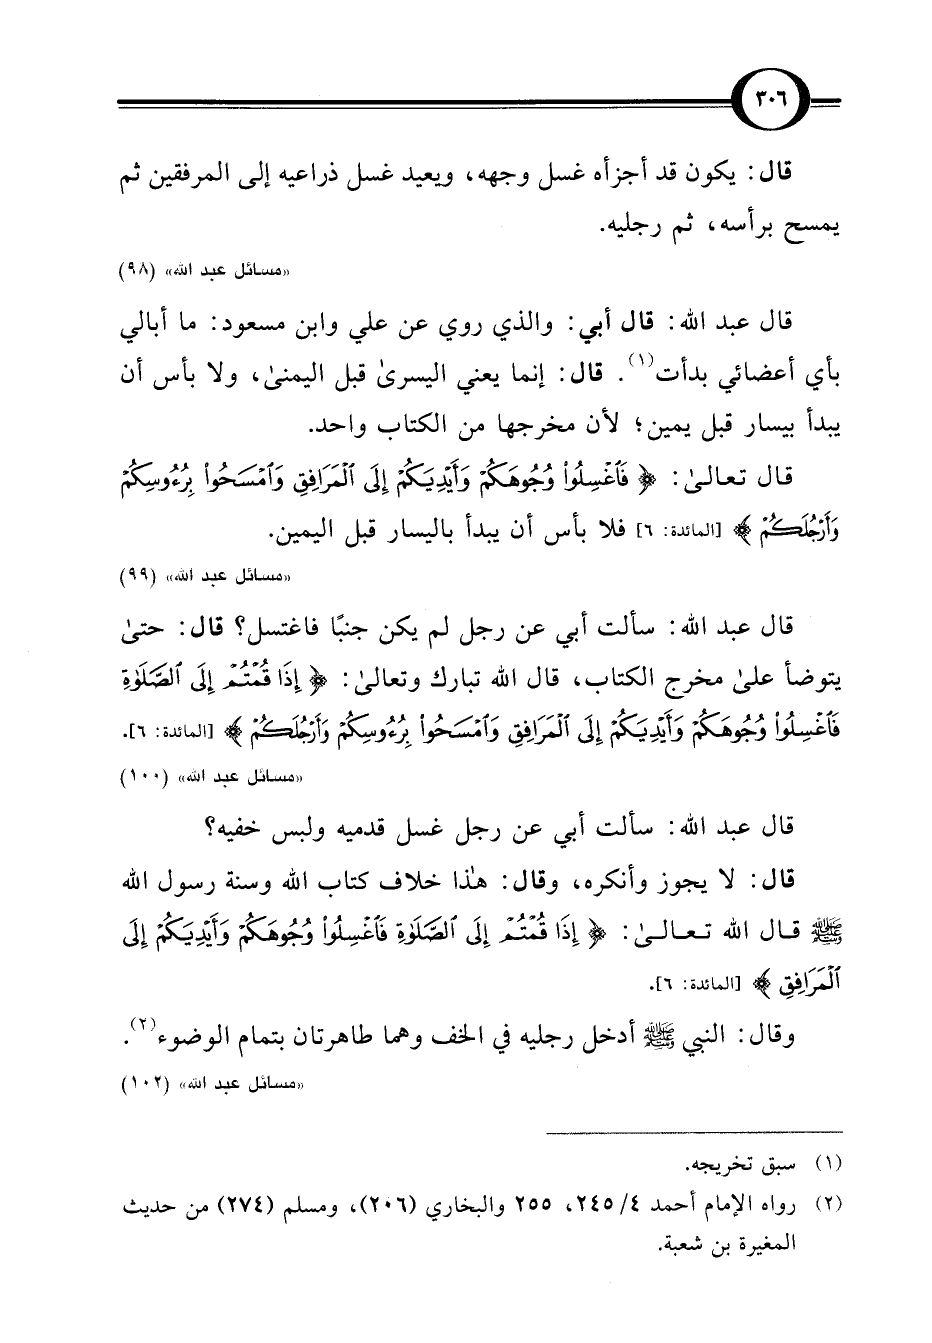 ٣٠٦
قال: يكون قد أجزأه غسل وجهه، ويعيد غسل ذراعيه إلى المرفقين ثم
يمسح برأسه، ثم رجليه.
«مسائل عبد الله» (٩٨)
قال عبد الله: قال أبي: والذي روي عن علي وابن مسعود: ما أبالي
بأي أعضائي بدأت(١). قال: إنما يعني اليسرىٰ قبل اليمنىٰ، ولا بأس أن
يبدأ بيسار قبل يمين؛ لأن مخرجها من الكتاب واحد.
قال تعالىٰ: ﴿فَٱغۡسِلُواْ وُجُوهَكُمۡ وَأَيۡدِيَكُمۡ إِلَى ٱلۡمَرَافِقِ وَٱمۡسَحُواْ بِرُءُوسِكُمۡ
وَأَرۡجُلَكُمۡ﴾ [المائدة: ٦] فلا بأس أن يبدأ باليسار قبل اليمين.
«مسائل عبد الله» (٩٩)
قال عبد الله: سألت أبي عن رجل لم يكن جنبًا فاغتسل؟ قال: حتىٰ
يتوضأ علىٰ مخرج الكتاب، قال الله تبارك وتعالىٰ: ﴿إِذَا قُمۡتُمۡ إِلَى ٱلصَّلَوٰةِ
فَٱغۡسِلُواْ وُجُوهَكُمۡ وَأَيۡدِيَكُمۡ إِلَى ٱلۡمَرَافِقِ وَٱمۡسَحُواْ بِرُءُوسِكُمۡ وَأَرۡجُلَكُمۡ﴾ [المائدة: ٦].
«مسائل عبد الله» (١٠٠)
قال عبد الله: سألت أبي عن رجل غسل قدميه ولبس خفيه؟
قال: لا يجوز وأنكره، وقال: هذا خلاف كتاب الله وسنة رسول الله
ﷺ قال الله تعالىٰ: ﴿إِذَا قُمۡتُمۡ إِلَى ٱلصَّلَوٰةِ فَٱغۡسِلُواْ وُجُوهَكُمۡ وَأَيۡدِيَكُمۡ إِلَى
ٱلۡمَرَافِقِ﴾ [المائدة: ٦].
وقال: النبي ﷺ أدخل رجليه في الخف وهما طاهرتان بتمام الوضوء(٢).
«مسائل عبد الله» (١٠٢)
(١) سبق تخريجه.
(٢) رواه الإمام أحمد ٤/ ٢٤٥، ٢٥٥ والبخاري (٢٠٦)، ومسلم (٢٧٤) من حديث
المغيرة بن شعبة.